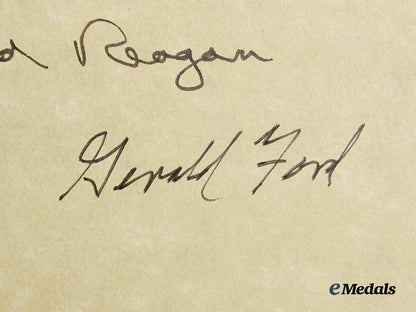 d Reagan
Gerald Ford
eMedals